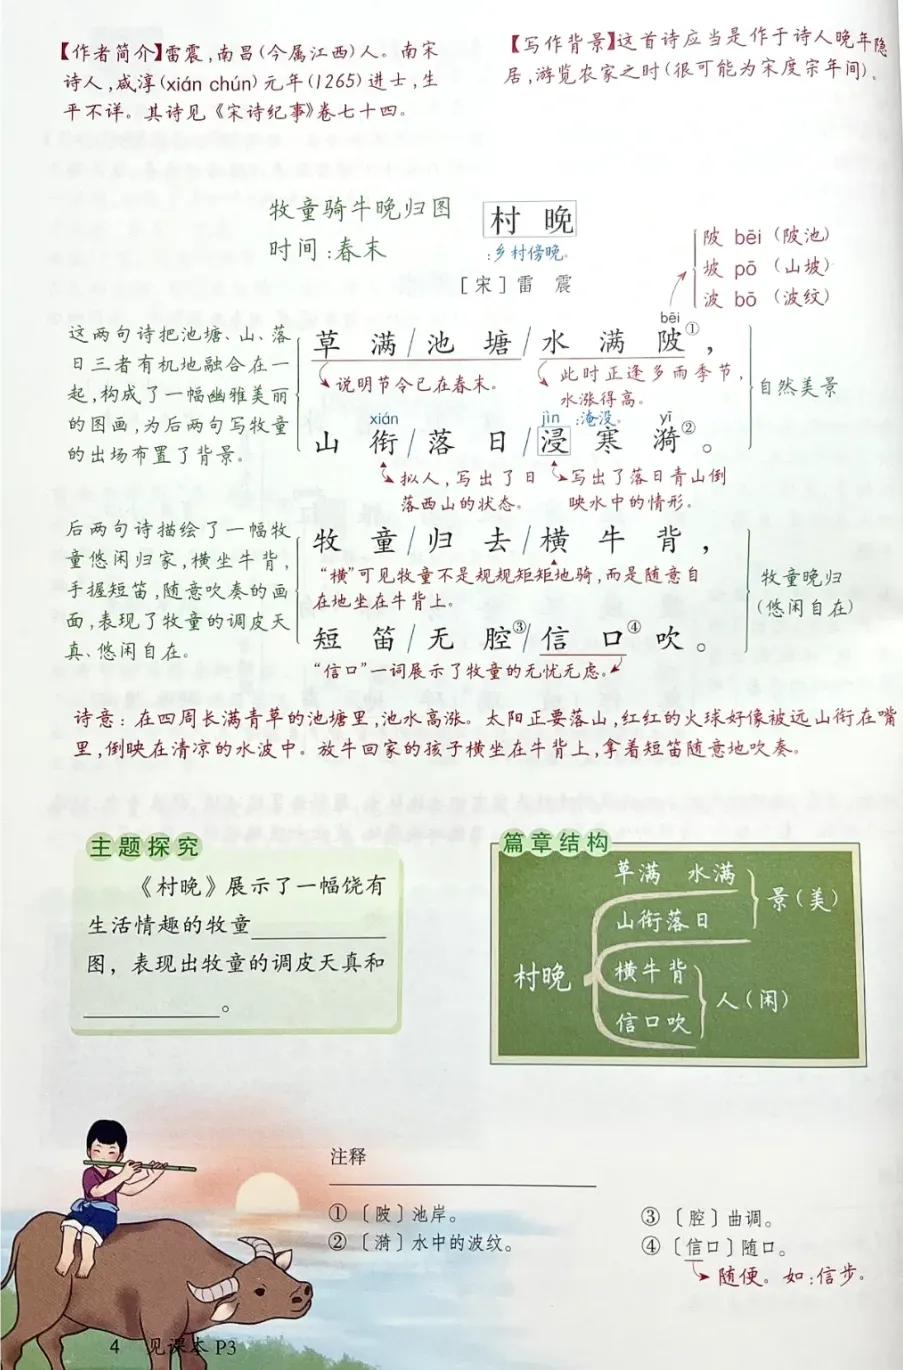 【作者简介】雷震,南昌(今属江西)人。南宋
诗人,咸淳(xián chún)元年(1265)进士,生
平不详。其诗见《宋诗纪事》卷七十四。
【写作背景】这首诗应当是作于诗人晚年隐
居,游览农家之时(很可能为宋度宗年间)。
牧童骑牛晚归图
时间:春末
村 晚
:乡村傍晚。
[宋]雷 震
陂 bēi(陂池)
坡 pō(山坡)
波 bō(波纹)
这两句诗把池塘、山、落
日三者有机地融合在一
起,构成了一幅幽雅美丽
的图画,为后两句写牧童
的出场布置了背景。
bēi
草 满/池 塘/水 满 陂①,
说明节令已在春末。
此时正逢多雨季节,
水涨得高。
xián jìn :淹没。 yī
山 衔/落 日/浸 寒 漪②。
拟人,写出了日
落西山的状态。
写出了落日青山倒
映水中的情形。
自然美景
后两句诗描绘了一幅牧
童悠闲归家,横坐牛背,
手握短笛,随意吹奏的画
面,表现了牧童的调皮天
真、悠闲自在。
牧 童/归 去/横 牛 背,
“横”可见牧童不是规规矩矩地骑,而是随意自
在地坐在牛背上。
短 笛/无 腔③/信 口④ 吹。
“信口”一词展示了牧童的无忧无虑。
牧童晚归
(悠闲自在)
诗意:在四周长满青草的池塘里,池水高涨。太阳正要落山,红红的火球好像被远山衔在嘴
里,倒映在清凉的水波中。放牛回家的孩子横坐在牛背上,拿着短笛随意地吹奏。
主题探究
《村晚》展示了一幅饶有
生活情趣的牧童________
图,表现出牧童的调皮天真和
________。
篇章结构
草满 水满
山衔落日
景(美)
村晚
横牛背
信口吹
人(闲)
注释
①〔陂〕池岸。
②〔漪〕水中的波纹。
③〔腔〕曲调。
④〔信口〕随口。
随便。如:信步。
4 见课本 P3